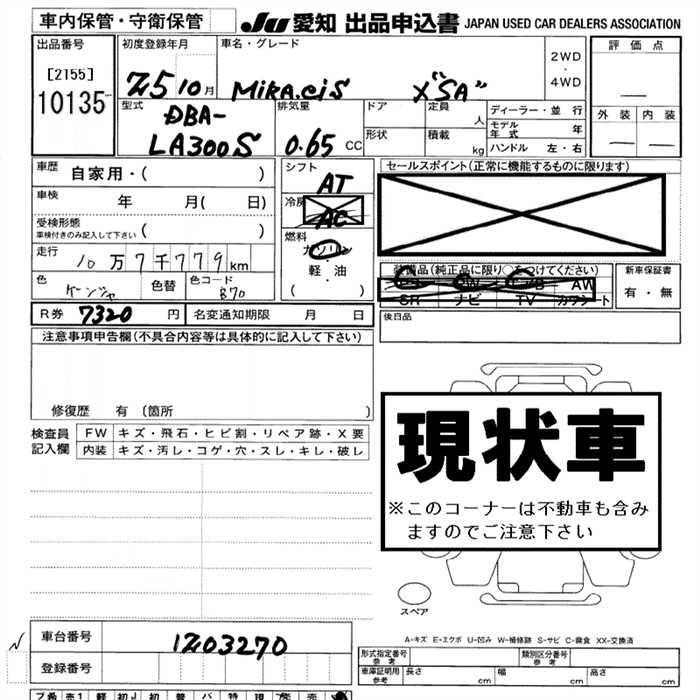 車内保管・守衛保管
JU 愛知 出品申込書 JAPAN USED CAR DEALERS ASSOCIATION
出品番号
[2155]
10135
初度登録年月
25 10 月
車名・グレード
Mira.eis X"SA"
2WD
・
4WD
評価点
外装 内装
型式
DBA-
LA300S
排気量
0.65 CC
ドア
形状
定員 人
積載 kg
ディーラー・並行
モデル年式 年
ハンドル 左・右
車歴 自家用・( )
車検 年 月( 日)
受検形態
車検付きのみ記入して下さい ( )
走行 10万7千779km
色
色替
色コード
B70
シフト
AT
冷房
AC
燃料
ガソリン
・
軽・油
( )
セールスポイント(正常に機能するものに限ります)
装備品(純正品に限り○をつけてください)
PS PW エアB AW
SR ナビ TV カワシート
新車保証書
有・無
後日品
R券 7320 円 名変通知期限 月 日
注意事項申告欄(不具合内容等は具体的に記入して下さい)
修復歴 有(箇所 )
検査員記入欄
FW キズ・飛石・ヒビ割・リペア跡・X要
内装 キズ・汚レ・コゲ・穴・スレ・キレ・破レ
現状車
※このコーナーは不動車も含み
ますのでご注意下さい
スペア
A-キズ E-エクボ U-凹み W-補修跡 S-サビ C-腐食 XX-交換済
N
車台番号 1203270
登録番号
形式指定番号
参考
類別区分番号
参考
車庫証明用
参考
長さ cm 幅 cm 高さ cm